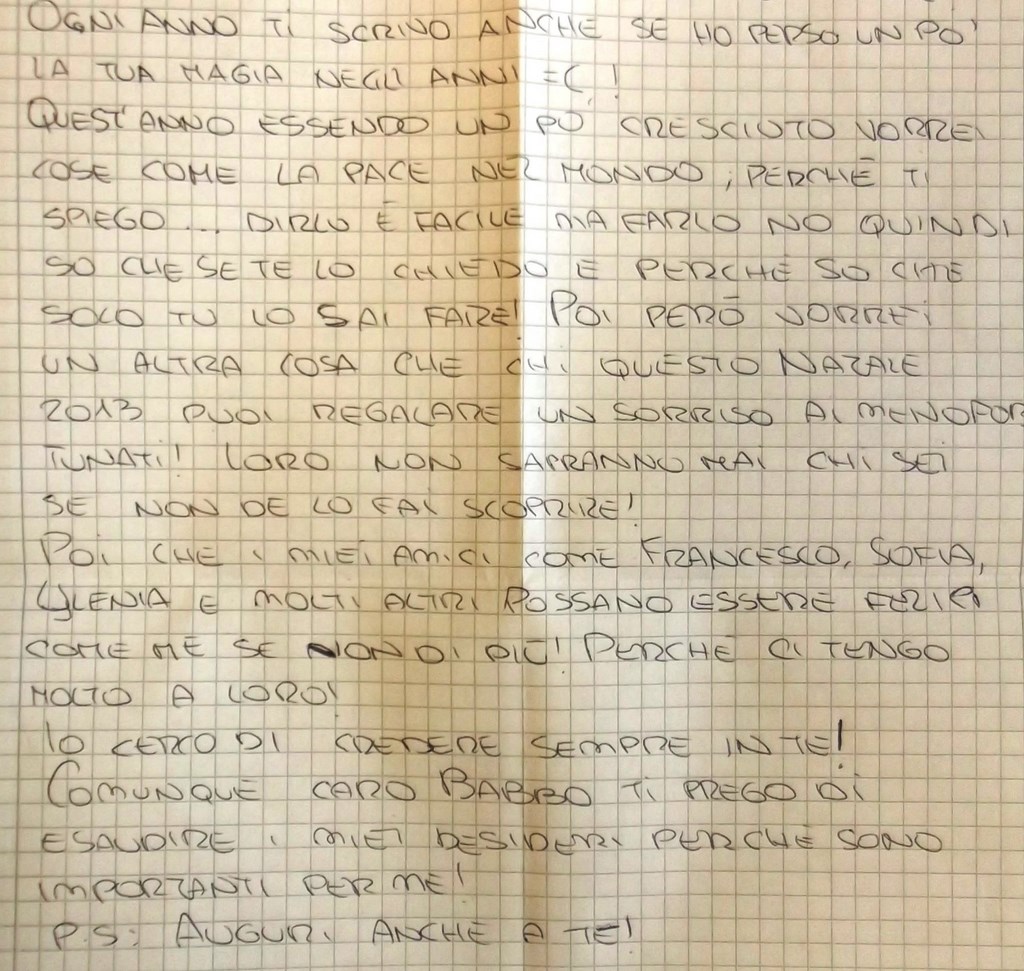 OGNI ANNO TI SCRIVO ANCHE SE HO PERSO UN PO'
LA TUA MAGIA NEGLI ANNI =( !
QUEST'ANNO ESSENDO UN PÒ CRESCIUTO VORREI
COSE COME LA PACE NEL MONDO, PERCHÈ TI
SPIEGO... DIRLO È FACILE MA FARLO NO QUINDI
SO CHE SE TE LO CHIEDO È PERCHÈ SO CHE
SOLO TU LO SAI FARE! POI PERÒ VORREI
UN ALTRA COSA CHE CHI QUESTO NATALE
2013 PUOI REGALARE UN SORRISO AI MENO FOR
TUNATI! LORO NON SAPRANNO MAI CHI SEI
SE NON DE LO FAI SCOPRIRE!
POI CHE I MIEI AMICI COME FRANCESCO, SOFIA,
YLENIA E MOLTI ALTRI POSSANO ESSERE FELICI
COME ME SE NON DI PIÙ! PERCHÈ CI TENGO
MOLTO A LORO!
IO CERCO DI CREDERE SEMPRE IN TE!
COMUNQUE CARO BABBO TI PREGO DI
ESAUDIRE I MIEI DESIDERI PERCHÈ SONO
IMPORTANTI PER ME!
P.S: AUGURI ANCHE A TE!